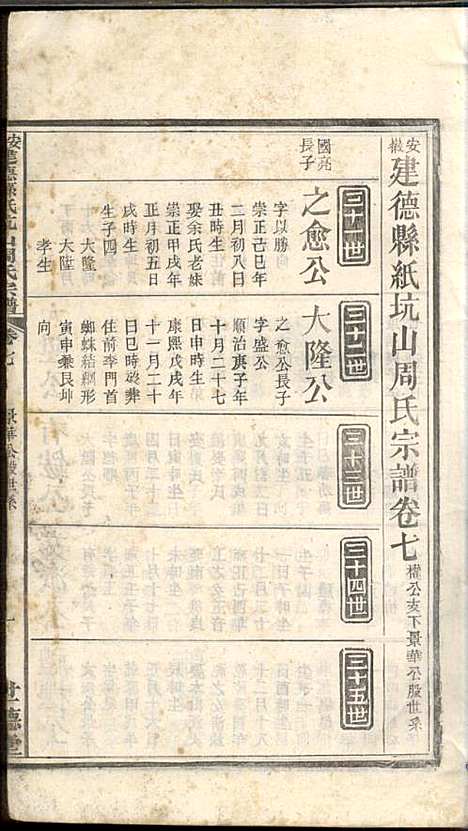 安徽建德縣紙坑山周氏宗譜卷七 權公支下景華公股世系
三十一世
國亮長子
之愈公
字以勝
崇正己巳年
二月初八日
丑時生
娶余氏老妹
崇正甲戌年
正月初五日
戌時生
生子四
大隆
大陞
孝生
三十二世
大隆公
之愈公長子
字盛公
順治庚子年
十月二十七
日申時生
康熙戊戌年
十一月二十
日巳時歿葬
住前李門首
蜘蛛結網形
寅申兼艮坤
向
三十三世
三十四世
三十五世
建德縣紙坑山周氏宗譜
卷七
景華公股世系
一
世德堂